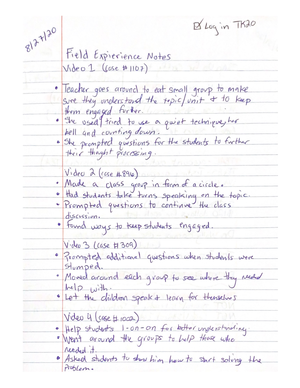 ☑ Log in TK20
8/27/20
Field Expierience Notes
Video 1 (case #1107)
• Teacher goes around to eat small group to make
sure they understand the topic/unit & to keep
them engaged further.
• She used/tried to use a quiet technique, her
bell and counting down.
• She prompted questions for the students to further
their thought processing.
Video 2 (case #896)
• Made a class group in form of a circle.
• Had students take turns speaking on the topic.
• Prompted questions to continue the class
discussion.
• Found ways to keep students engaged.
Video 3 (case #309)
• Prompted additional questions when students were
stumped.
• Moved around each group to see where they needed
help with.
• Let the children speak & learn for themselves
Video 4 (case #1002)
• Help students 1-on-on for better understanding
• Went around the groups to help those who
needed it.
• Asked students to show him how to start solving the
problem.